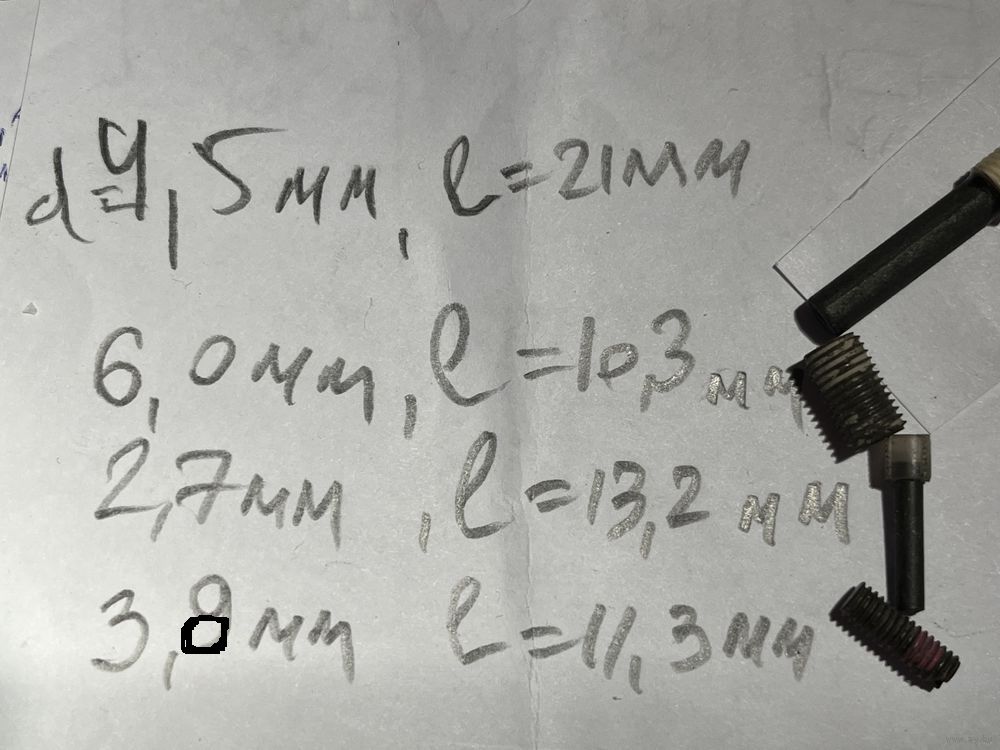 d=4,5мм, l=21мм
6,0мм, l=10,3мм
2,7мм, l=13,2мм
3,8мм l=11,3мм